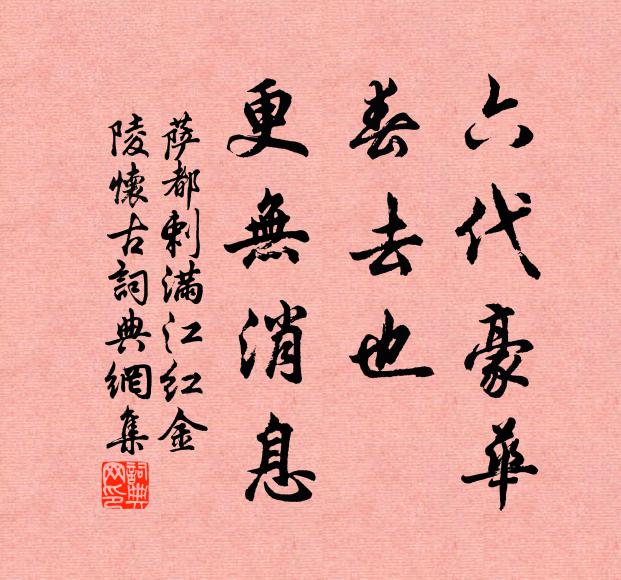 六代豪華
春去也
更無消息
萨都剌满江红金
陵懷古詞典網集
詞典
网印